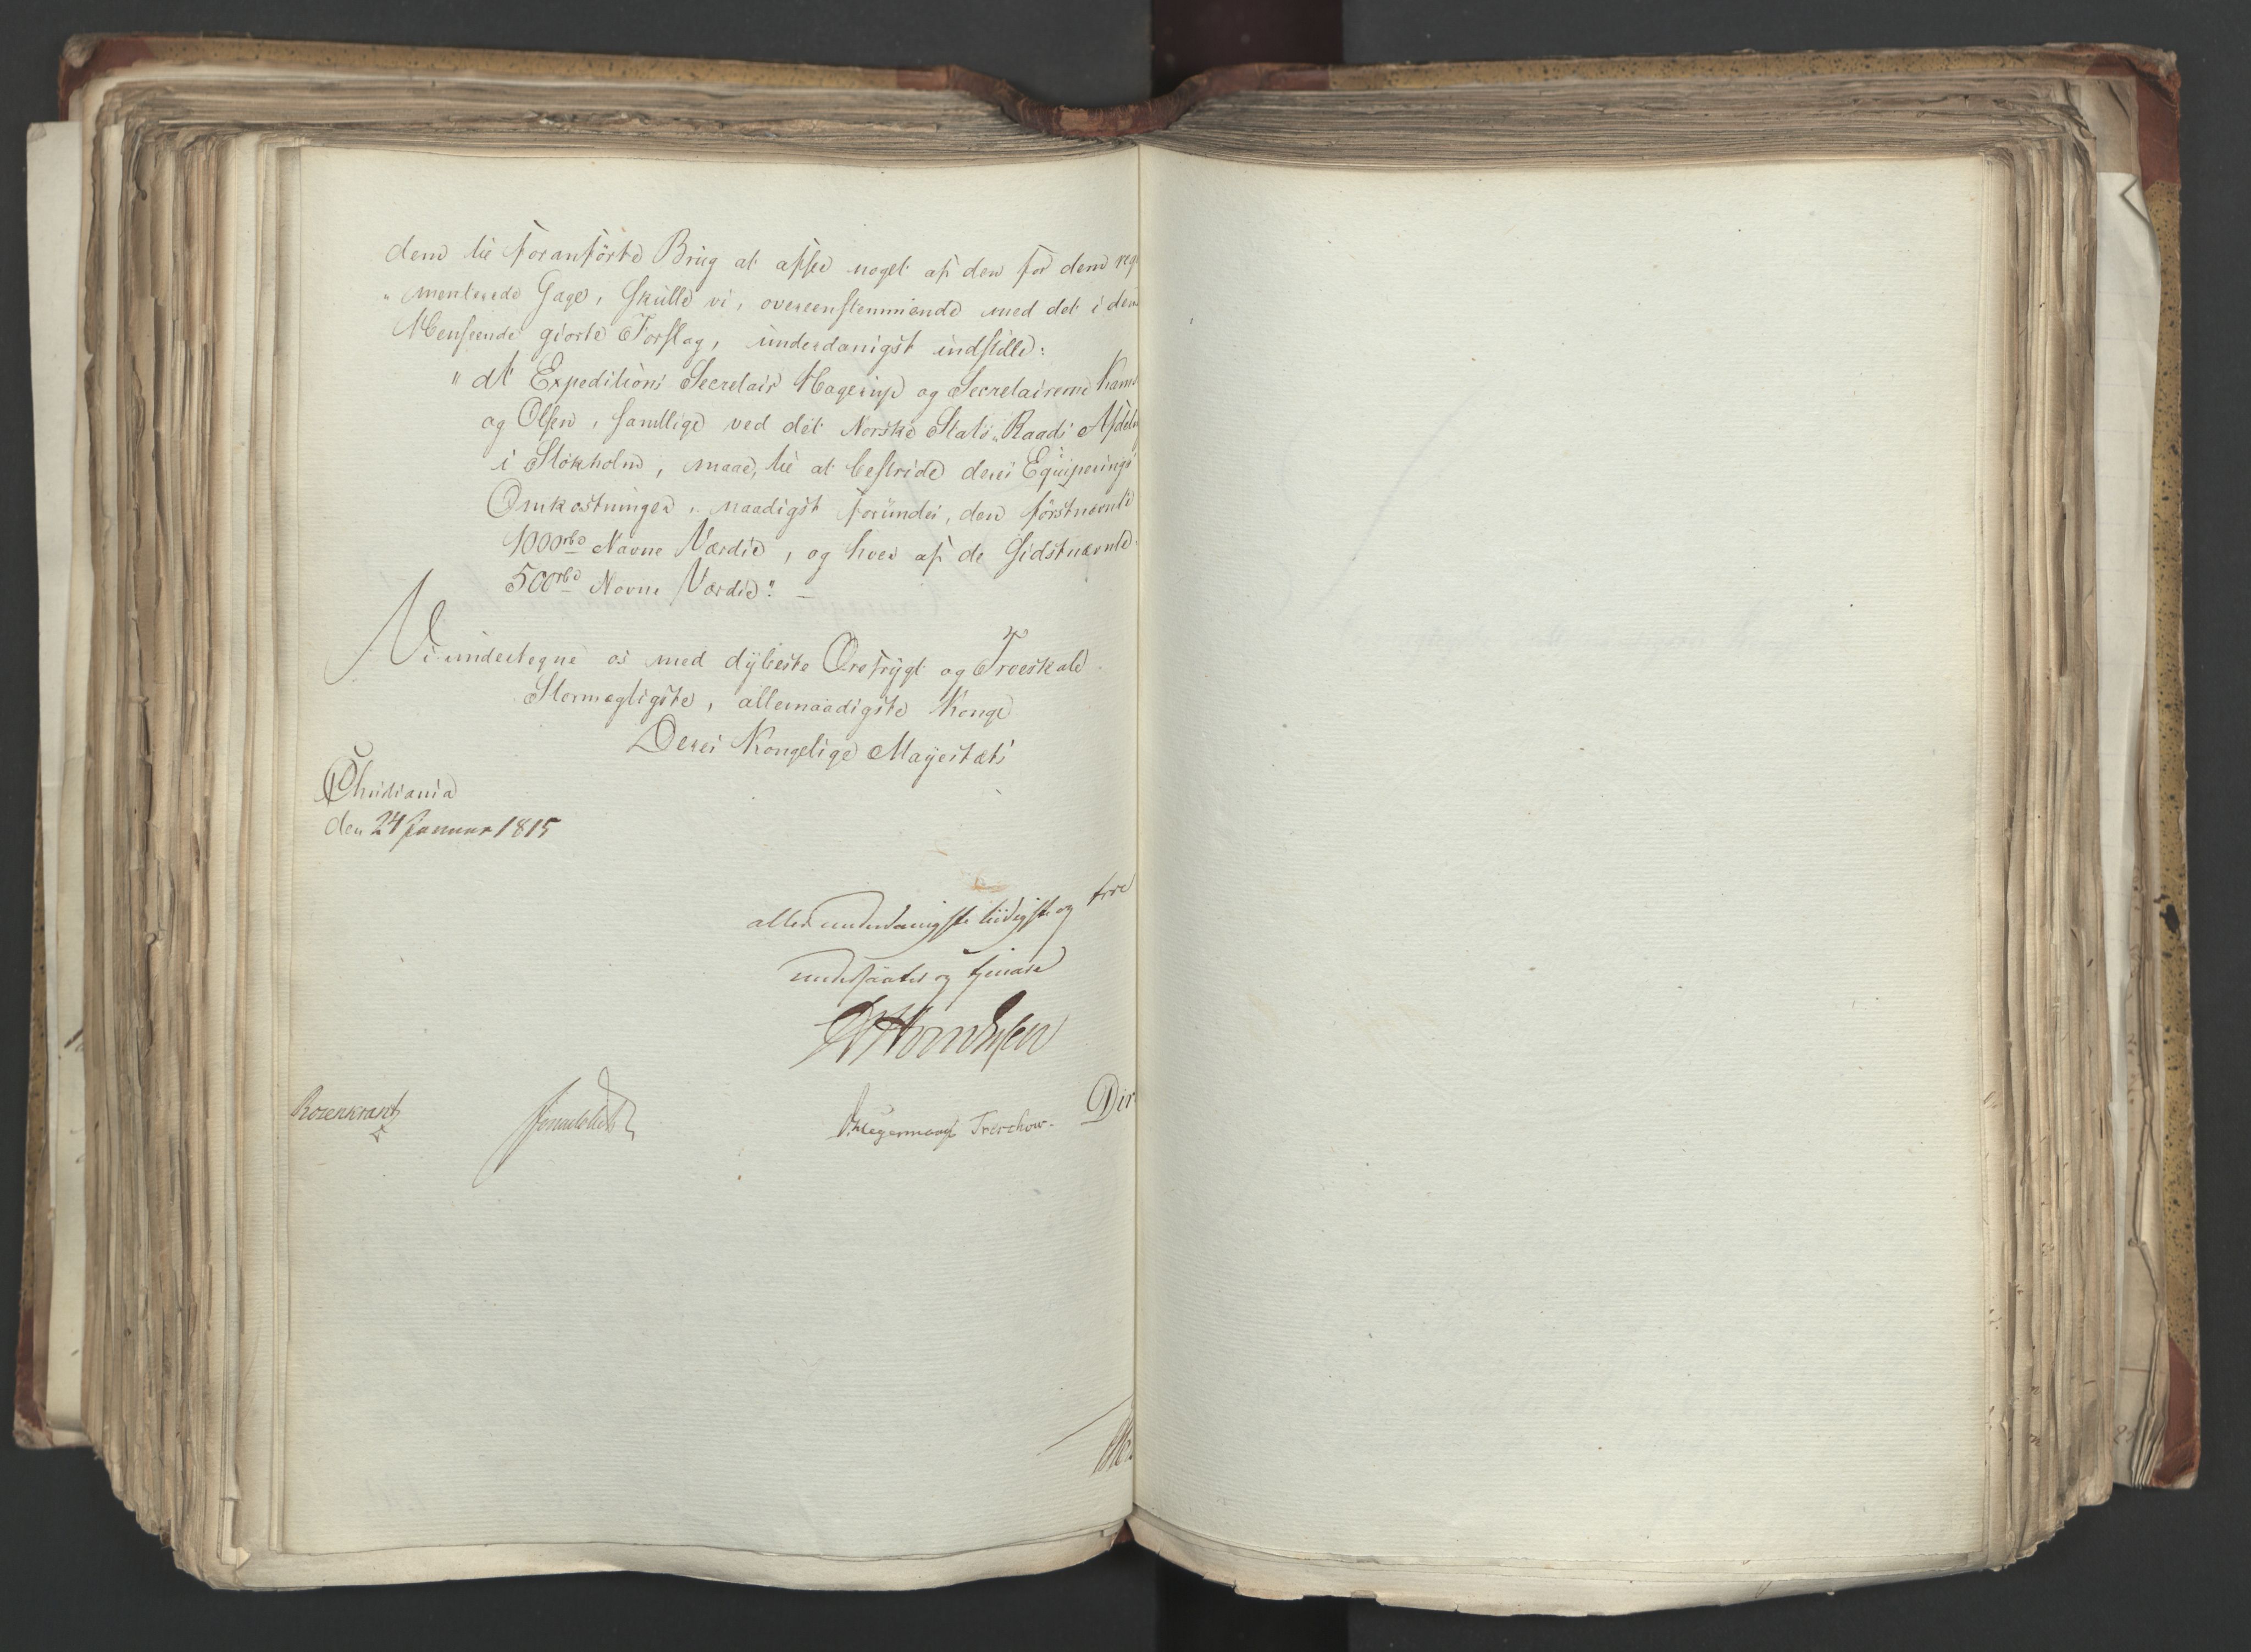 dem til foranførte Brug at afsee noget af den for dem reg
"menterede Gage, skulle vi, overeenstemmende med det i den
Henseende giorte Forslag, underdanigst indstille:
"at Expeditions Secretair Hagerup og Secretairerne
og Olsen, samtlige ved det Norske Stats-Raads Afdel
i Stokholm, maae, til at bestride deres Equiperings
Omkostninger, naadigst forundes, den førstnævnte
1000 rbd Navne Værdie, og hver af de sidstnævnte
500 rbd Navne Værdie". –
Vi undertegne os med dybeste Ærefrygt og Troeskab
Stormægtigste, allernaadigste Konge
Deres Kongelige Mayestæts
Christiania
den 24 Januar 1815
allerunderdanigste lydigste og troe
undersaatter og tjenere
Rosenkrantz
Hegermann Treschow.